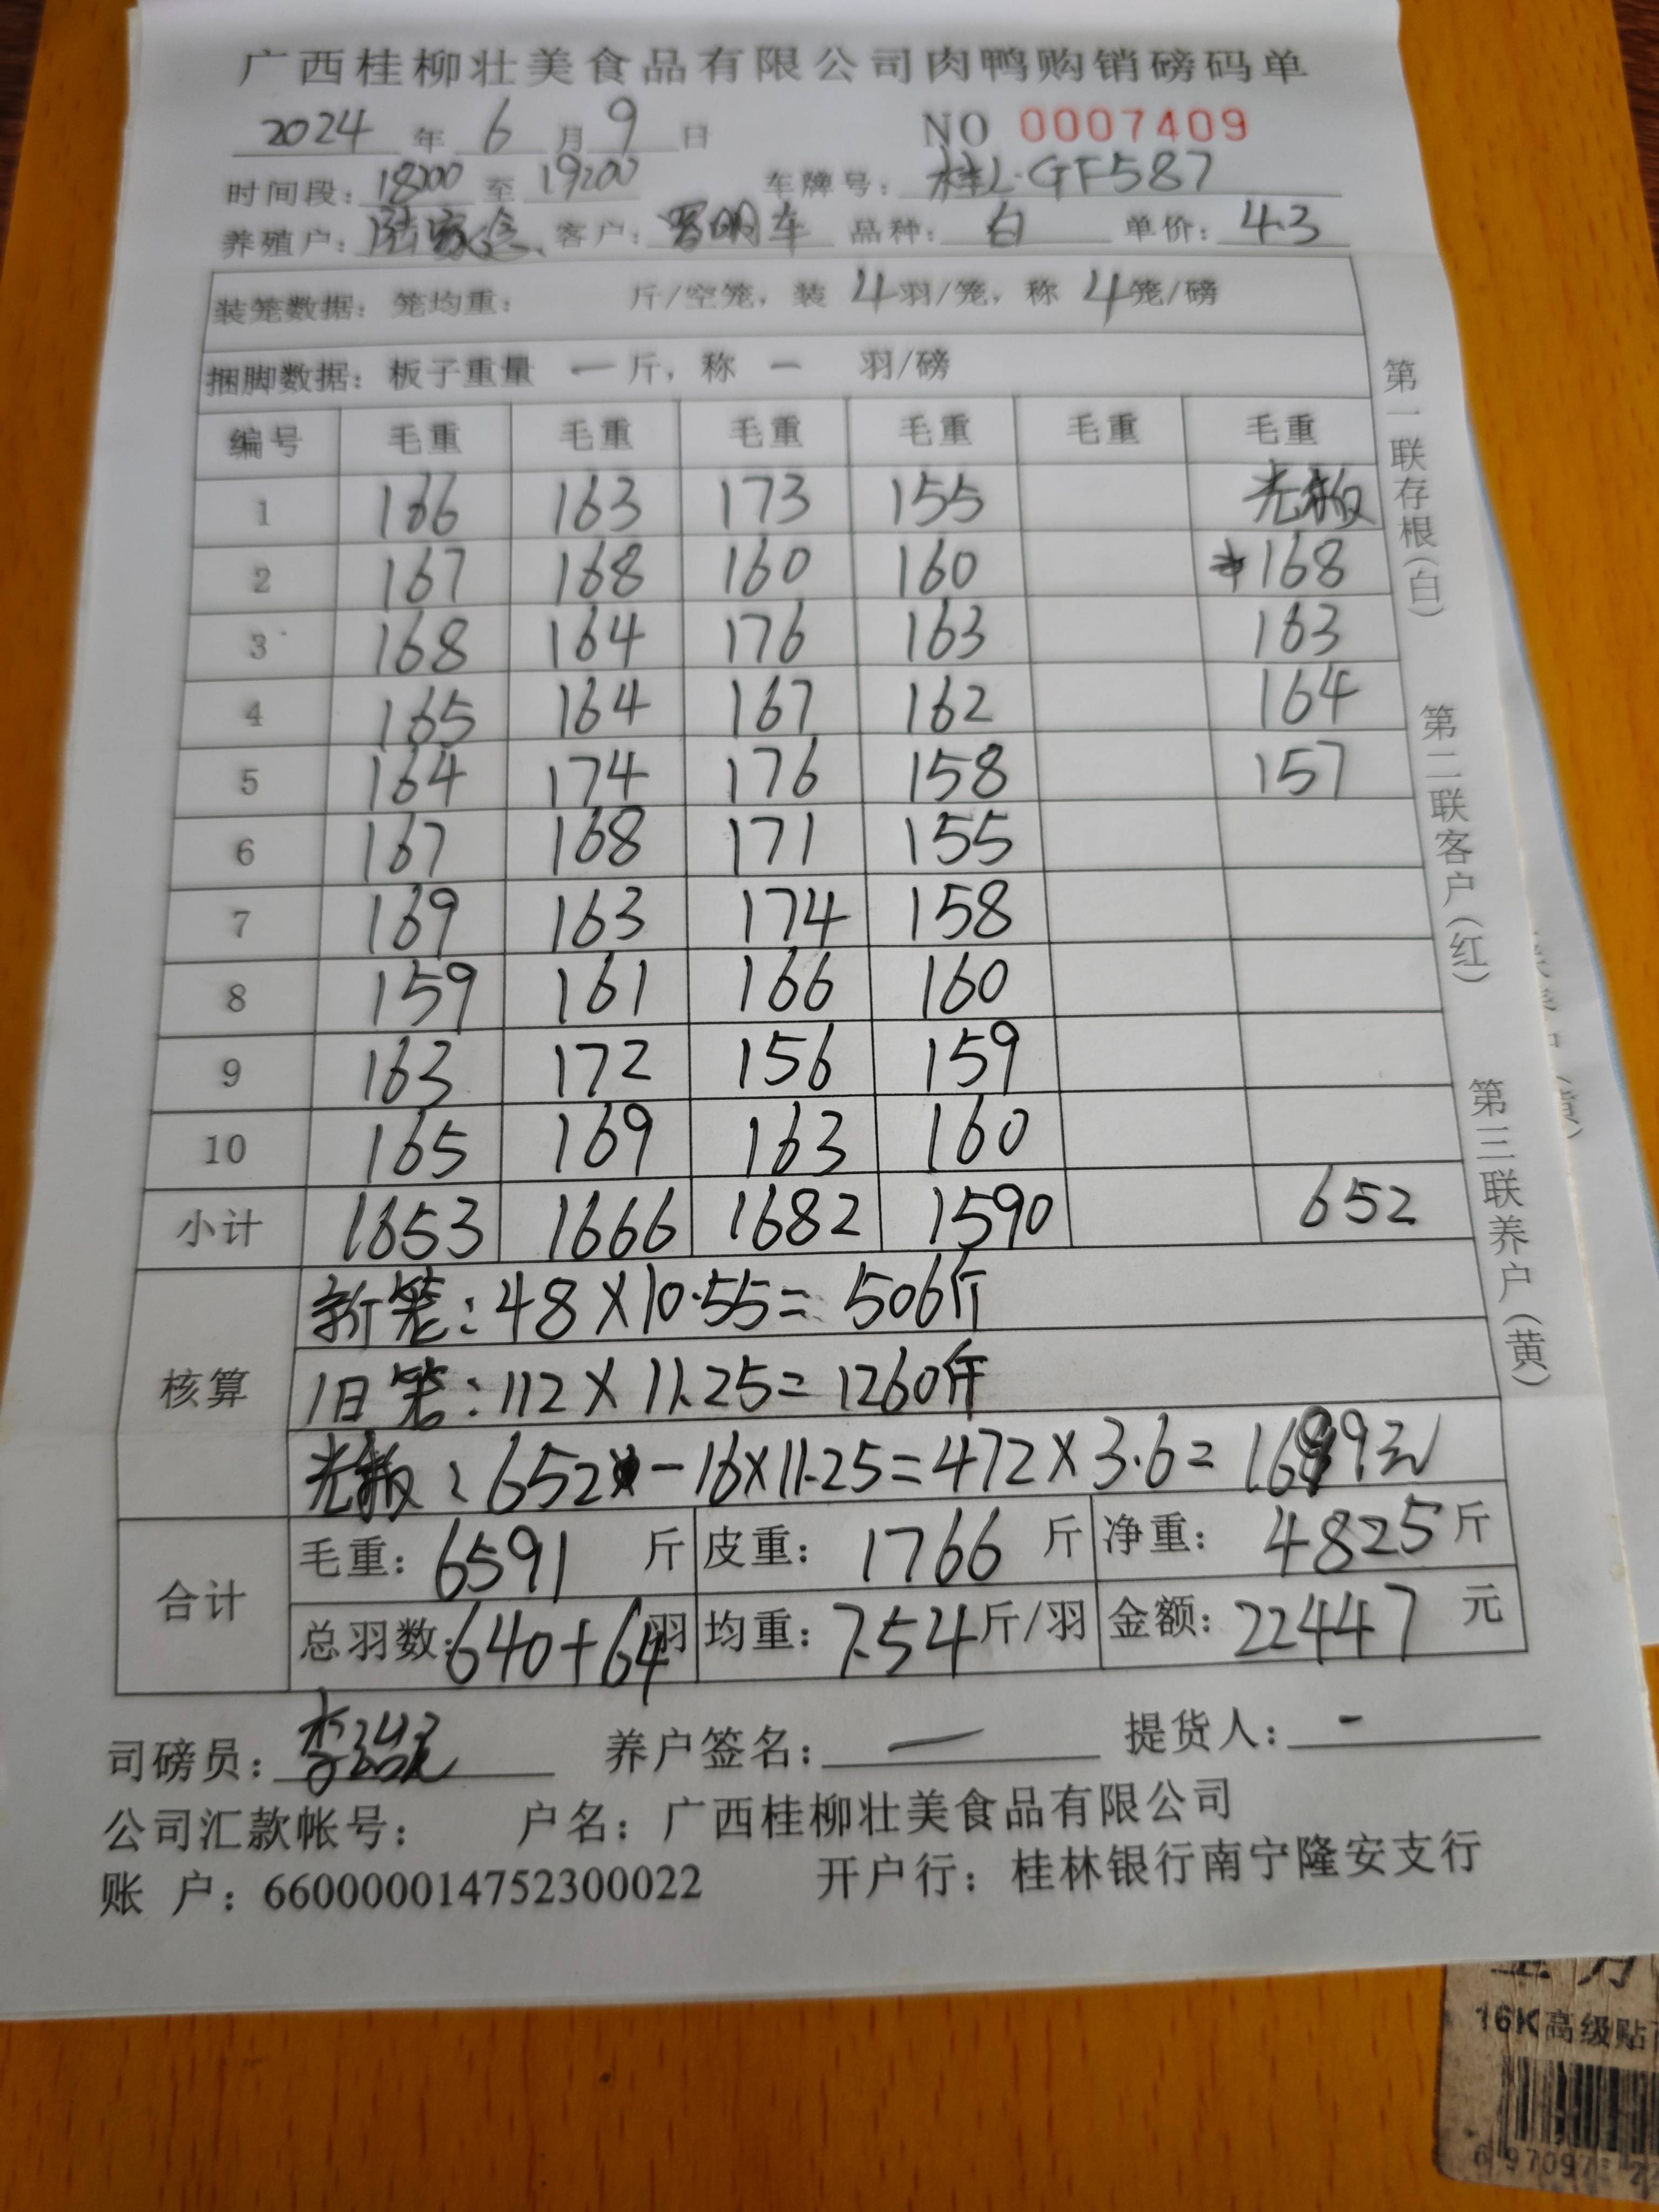 广西桂柳壮美食品有限公司肉鸭购销磅码单
2024 年 6 月 9 日 NO 0007409
时间段: 18:00 至 19:00 车牌号: 桂L·GF587
养殖户: 客户: 罗明车 品种: 白 单价: 4.3
装笼数据: 笼均重: 斤/空笼, 装 4 羽/笼, 称 4 笼/磅
捆脚数据: 板子重量 一 斤, 称 一 羽/磅
编号 毛重 毛重 毛重 毛重 毛重 毛重
1 166 163 173 155 光板
2 167 168 160 160 168
3 168 164 176 163 163
4 165 164 167 162 164
5 164 174 176 158 157
6 167 168 171 155
7 169 163 174 158
8 159 161 166 160
9 163 172 156 159
10 165 169 163 160
小计 1653 1666 1682 1590 652
核算
新笼: 48×10.55= 506斤
旧笼: 112×11.25= 1260斤
光板: 652-16×11.25=472×3.6= 1699元
合计
毛重: 6591 斤 皮重: 1766 斤 净重: 4825 斤
总羽数: 640+64 羽 均重: 7.54 斤/羽 金额: 22447 元
司磅员: 养户签名: 一 提货人: -
公司汇款帐号: 户名: 广西桂柳壮美食品有限公司
账 户: 660000014752300022 开户行: 桂林银行南宁隆安支行
第一联存根(白)
第二联客户(红)
第三联养户(黄)
16K高级贴